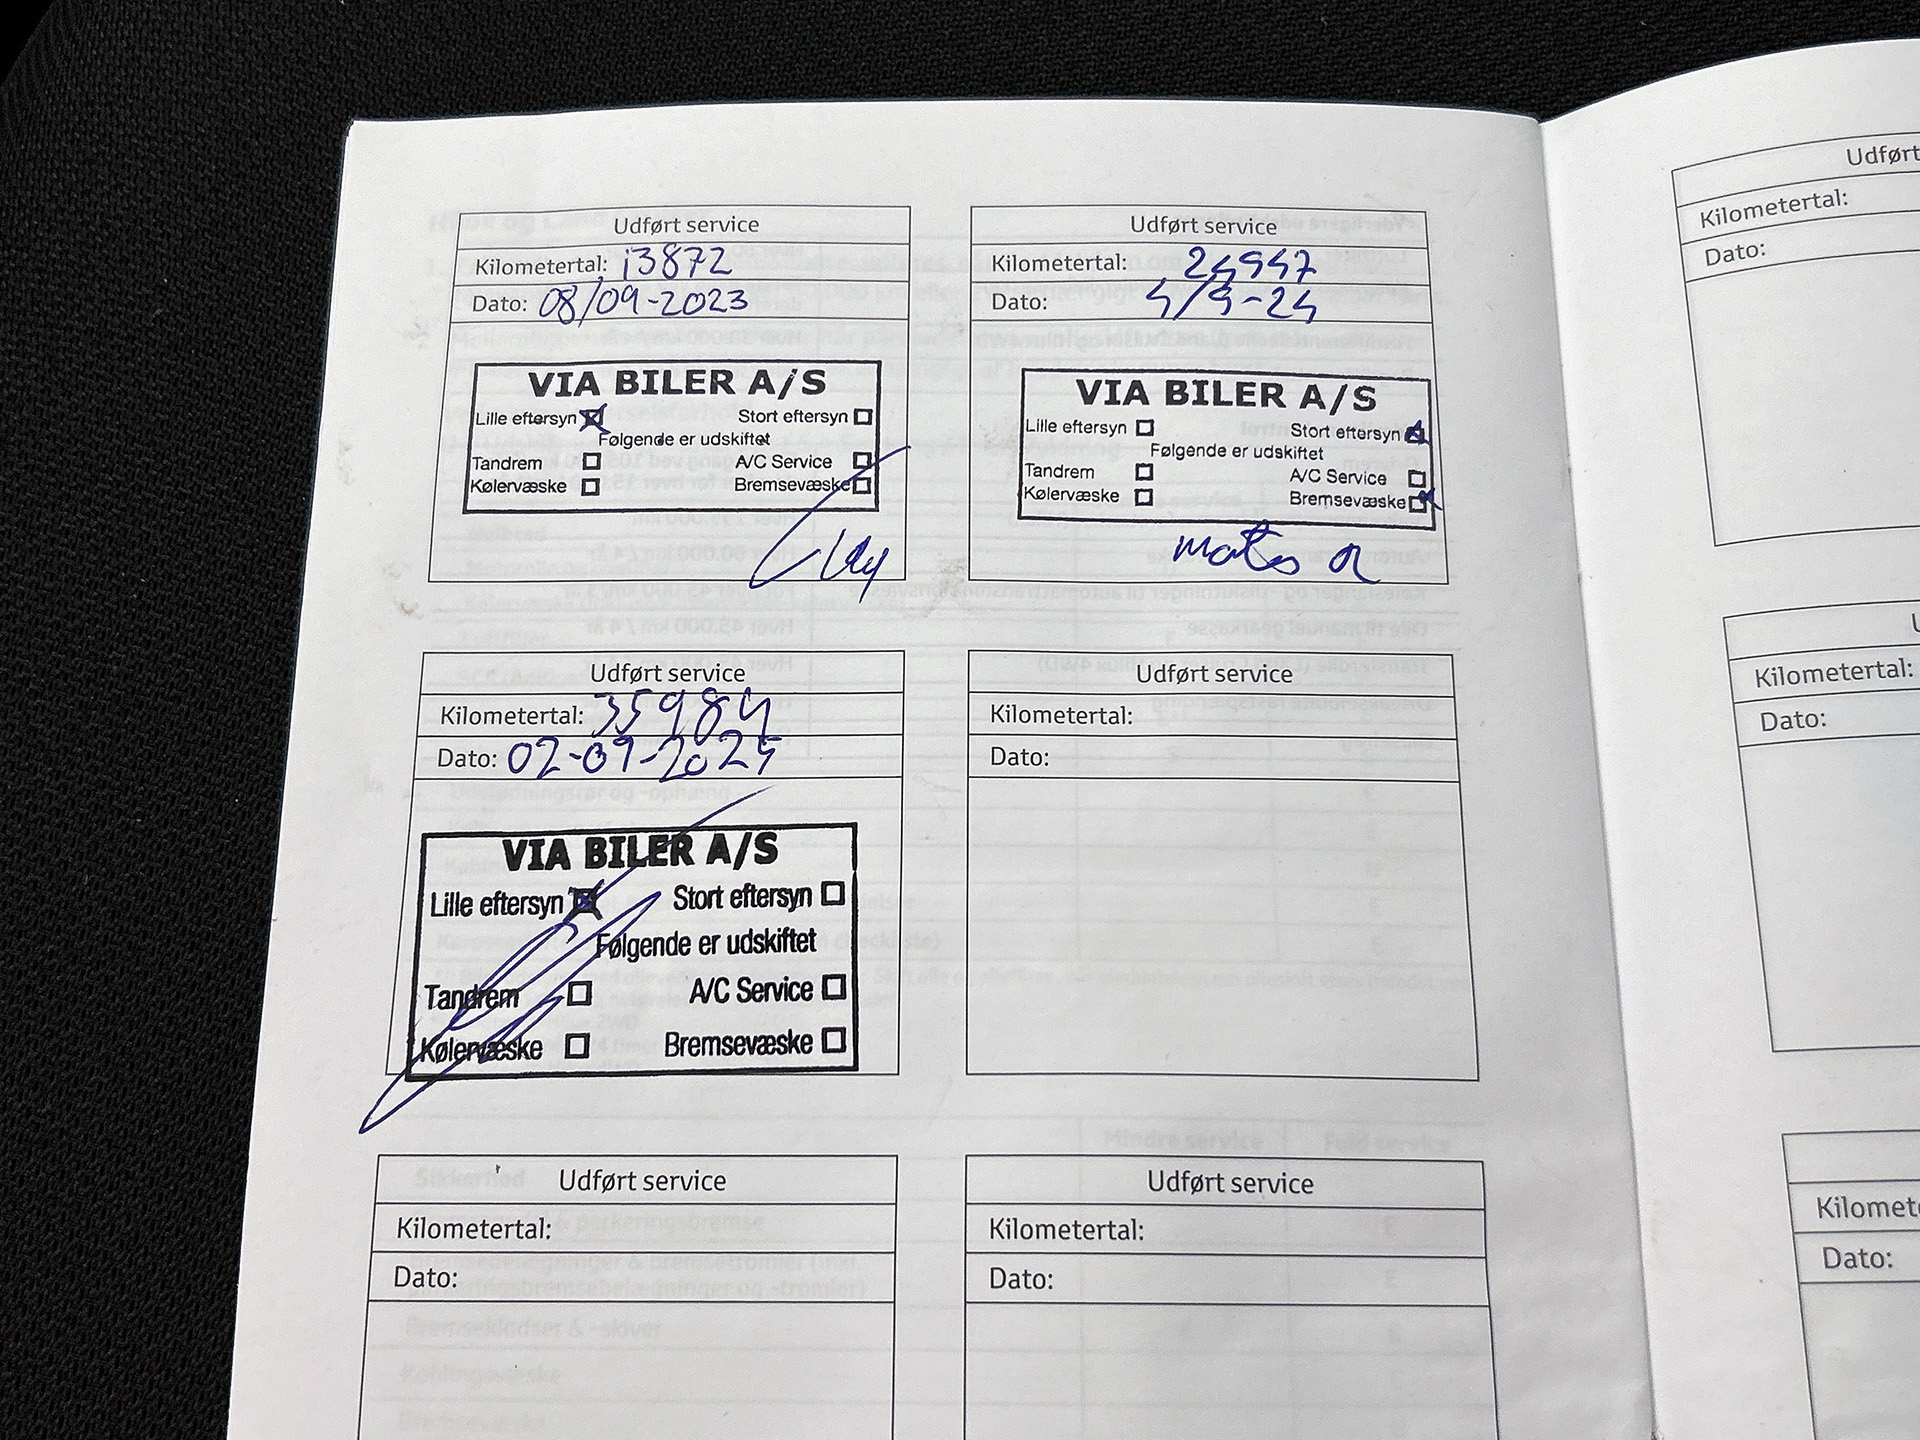 Udført service
Kilometertal: 13872
Dato: 08/09-2023
VIA BILER A/S
Lille eftersyn Stort eftersyn
Følgende er udskiftet
Tandrem A/C Service
Kølervæske Bremsevæske
Udført service
Kilometertal: 24947
Dato: 4/9-24
VIA BILER A/S
Lille eftersyn Stort eftersyn
Følgende er udskiftet
Tandrem A/C Service
Kølervæske Bremsevæske
Udført service
Kilometertal: 35984
Dato: 02-09-2025
VIA BILER A/S
Lille eftersyn Stort eftersyn
Følgende er udskiftet
Tandrem A/C Service
Kølervæske Bremsevæske
Udført service
Kilometertal:
Dato:
Udført service
Kilometertal:
Dato:
Udført service
Kilometertal:
Dato:
Udført
Kilometertal:
Dato:
Kilometertal:
Dato:
Kilomet
Dato: